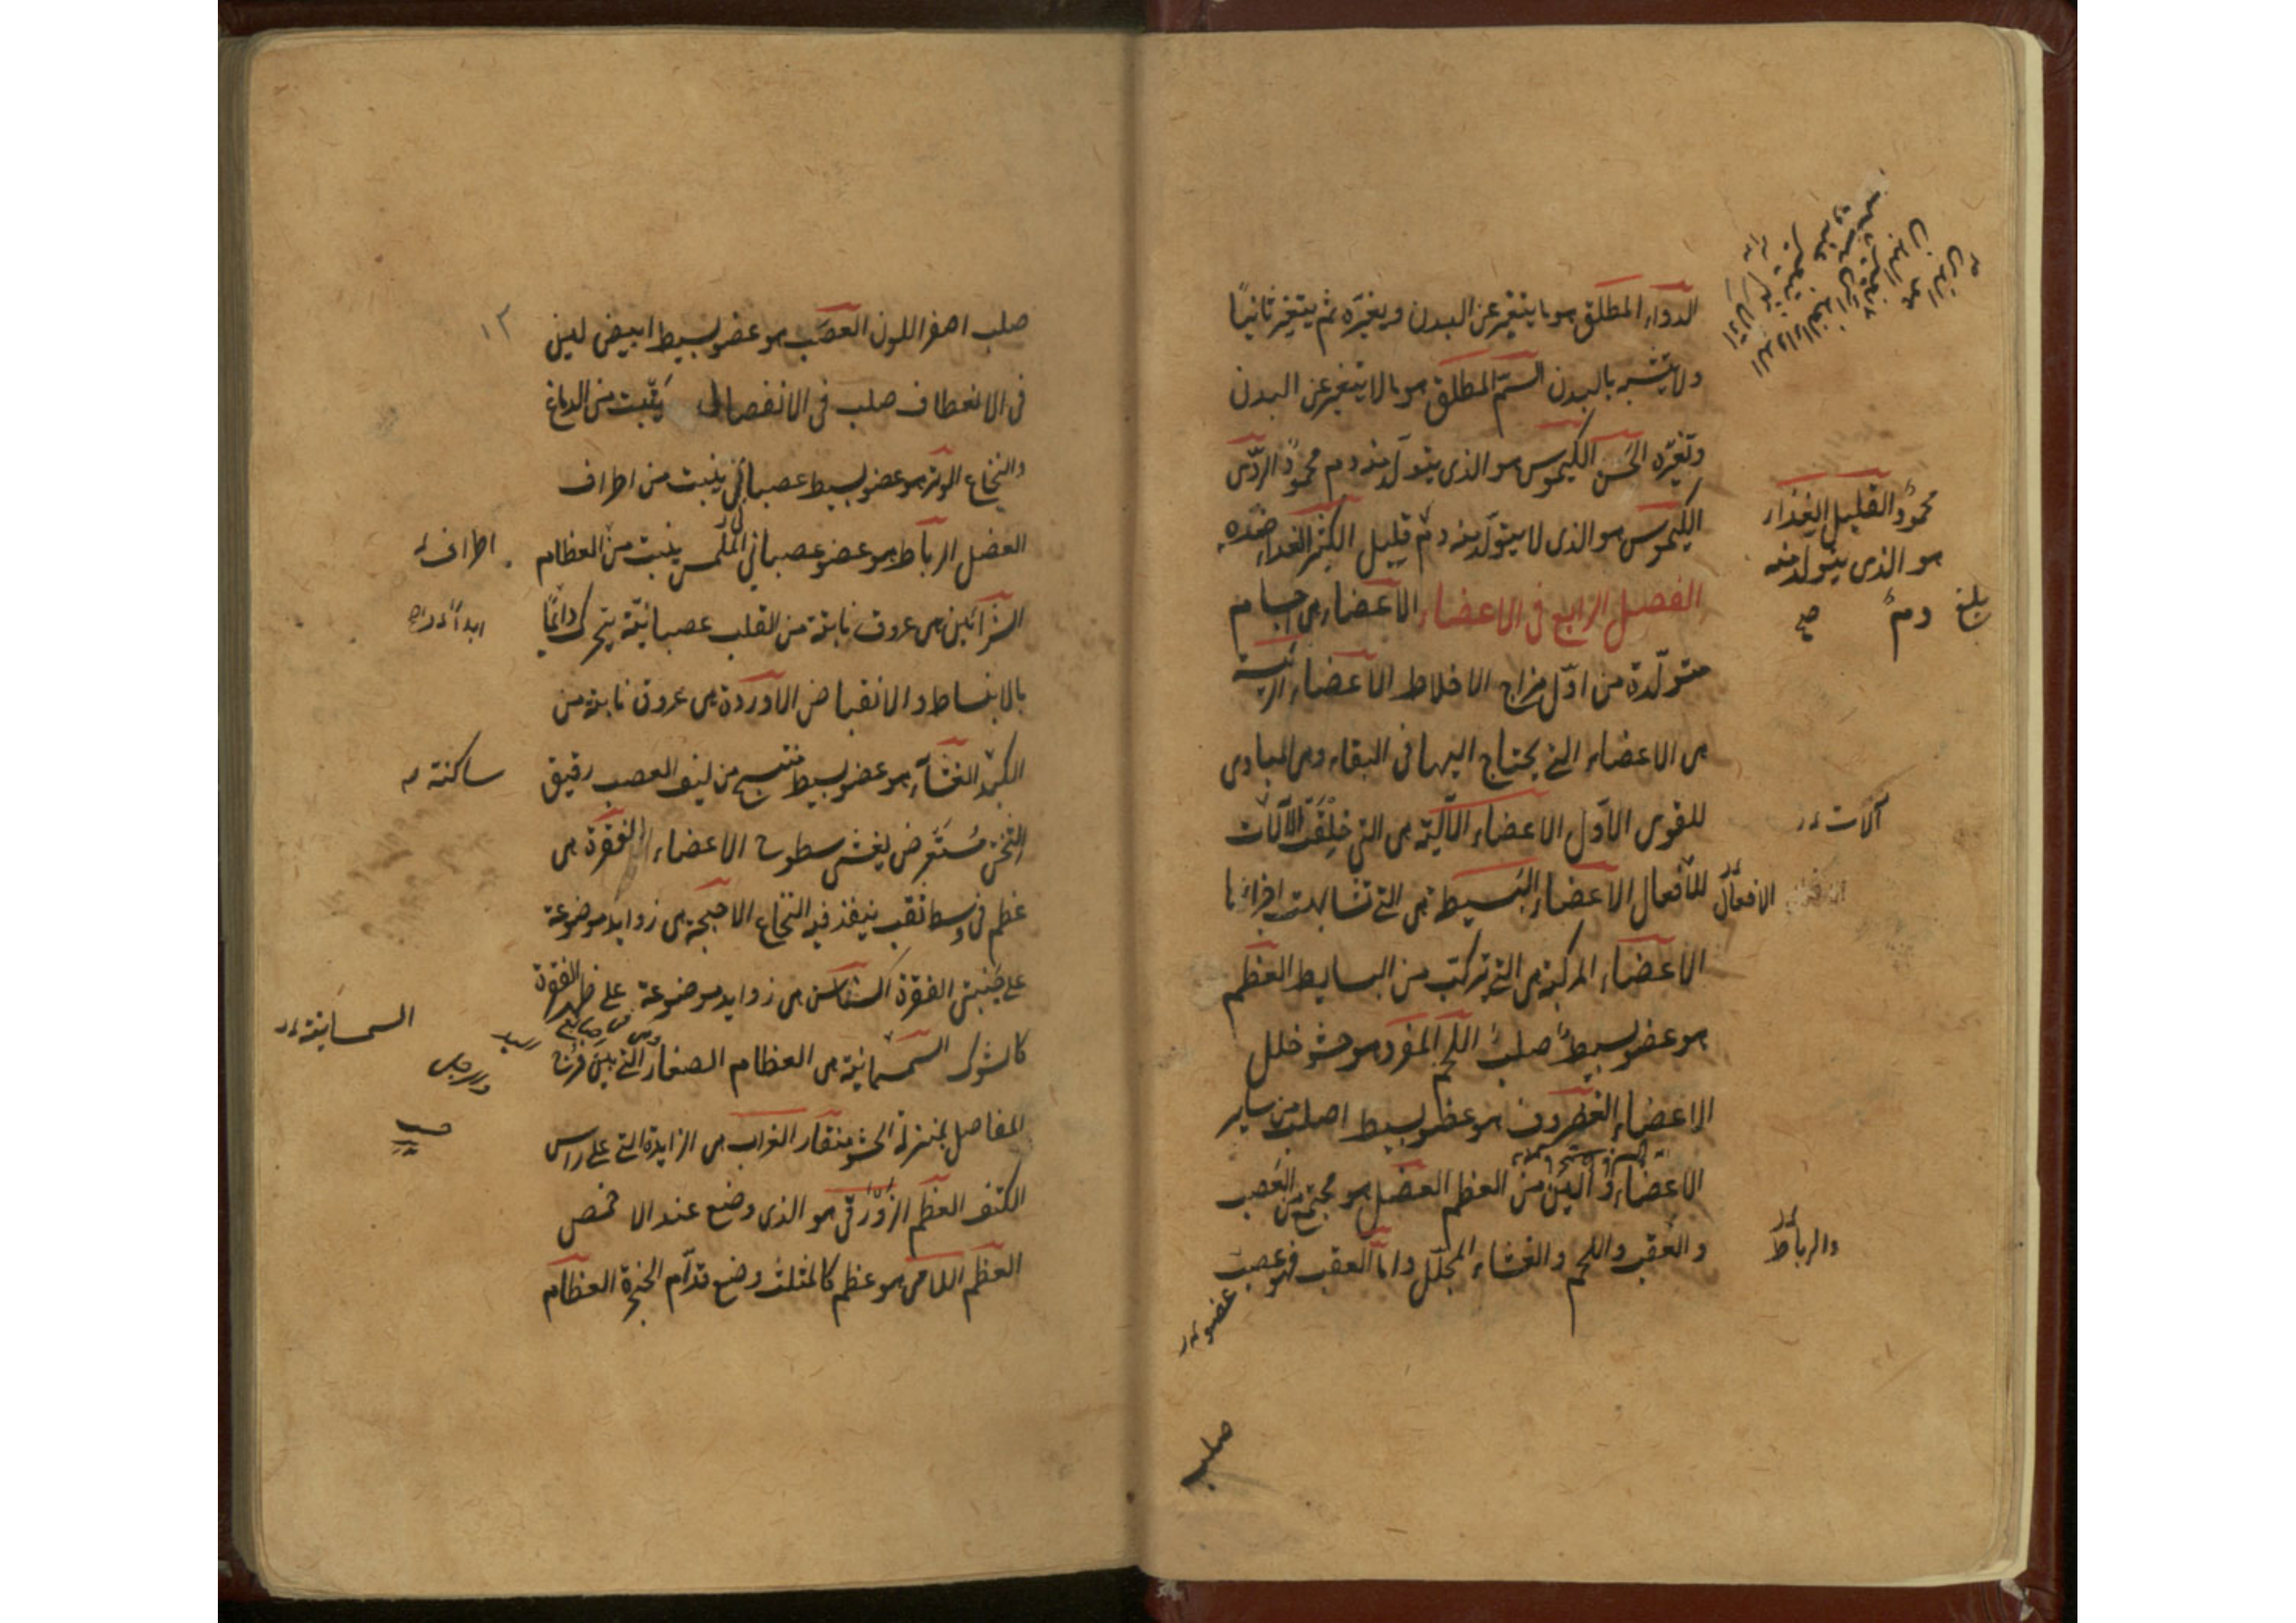 الدواء المطلق هو ما يتغير عن البدن ويغيره ثم يتغير ثانياً
ولا يتشبه بالبدن السمّ المطلق هو ما لا يتغير عن البدن
ويغيّره الحسن الكيموس هو الذي يتولد منه دم محمودٌ الردّي
الكيموس هو الذي لا يتولّد منه دم قليل الكثير الغذاء ضده
محمودٌ القليل الغذاء
هو الذي يتولد منه
دمٌ صح
بلغ
الفصل الرابع في الاعضاء الاعضاء هي اجسام
متولّدة من اوّل مزاج الاخلاط الاعضاء الرئيسة
هي الاعضاء التي يحتاج اليها في البقاء وهي المبادي
للقوى الاول الاعضاء الآلية هي التي خلقت الآلات
آلات
للأفعال الاعضاء البسيطة هي التي تشابهت اجزاءها
الافعال
الاعضاء المركبة هي التي تركبت من البسايط العظم
هو عضو بسيطٌ صلبٌ اللحم المفرد هو حشو خلل
الاعضاء الغضروف هو عظم بسيط اصلب من ساير
الاعضاء والين من العظم العضل هو مجتمع من العصب
والعقب واللحم والغشاء المجلّل وامّا العقب فهو عصب
والرباط
عضو
صلب
١٢
صلب اصفر اللون العصب هو عضو بسيط ابيض لين
في الانعطاف صلب في الانفصال ينبت من الدماغ
والنخاع الوتر هو عضو بسيط عصباني ينبت من اطراف
العضل الرباط هو عضو عصباني الملمس ينبت من العظام
اطراف
الشرائين هي عروق نابتة من القلب عصبانيّة يتحرك دائمًا
ابدا
بالانبساط والانقباض الأوردة هي عروق نابتة من
الكبد الغشاء هو عضو بسيط منتسج من ليف العصب رقيق
ساكنة
الثخن مُستعرض يغشي سطوح الاعضاء الفقرة هي
عظم في وسط ثقب ينفذ فيه النخاع الاجنحة هي زوايد موضوعة
على جنبتي الفقرة السناسن هي زوايد موضوعة على ظهر الفقرة
كالشوك السمسمانية هي العظام الصغار التي بين فرج
السمسانية
المفاصل بمنزلة الحشو منقار الغراب هي الزايدة التي على راس
الكتف العظم الزّورقي هو الذي وضع عند الاخمص
العظم اللامي هو عظم كالمثلث وضع قدّام الحنجرة العظام